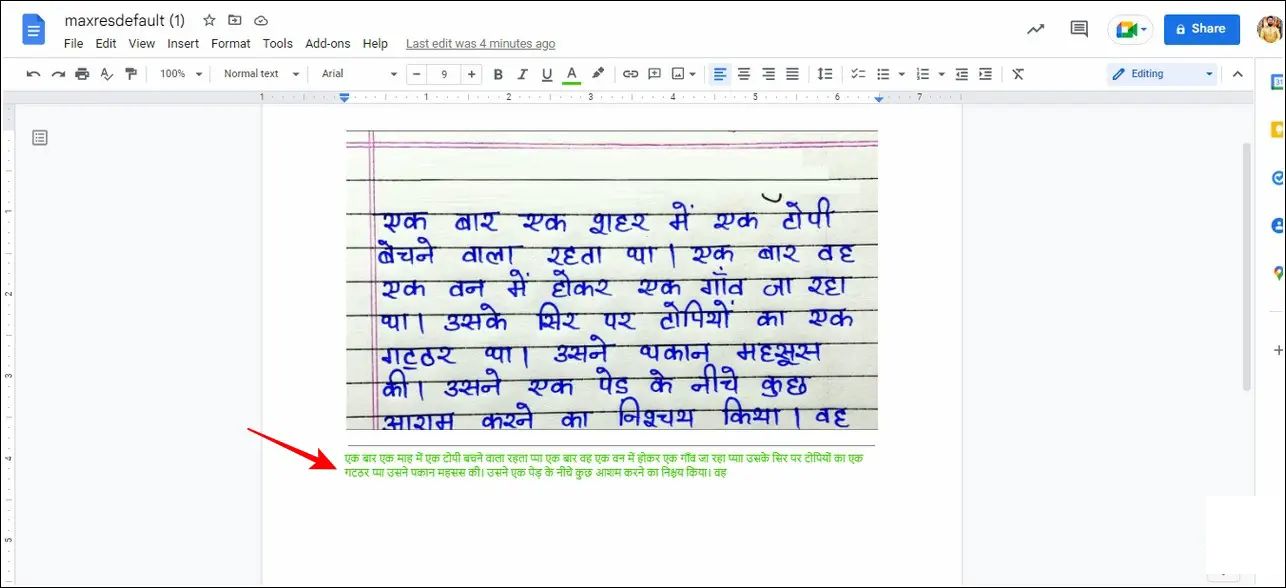 maxresdefault (1)
File Edit View Insert Format Tools Add-ons Help Last edit was 4 minutes ago
Share
100% Normal text Arial − 9 + B I U A Editing
1 1 2 3 4 5 6 7
एक बार एक शहर में एक टोपी
बेचने वाला रहता था। एक बार वह
एक वन में होकर एक गाँव जा रहा
था। उसके सिर पर टोपियों का एक
गट्ठर था। उसने थकान महसूस
की। उसने एक पेड के नीचे कुछ
आराम करने का निश्चय किया। वह
एक बार एक माह में एक टोपी बचने वाला रहता प्या एक बार वह एक वन में होकर एक गाँव जा रहा प्याा उसके सिर पर टोपियों का एक
गटठर प्या उसने पकान महसस की। उसने एक पेड़ के नीचे कुछ आशम करने का निश्चय किया। वह
1
2
3
4
5
31